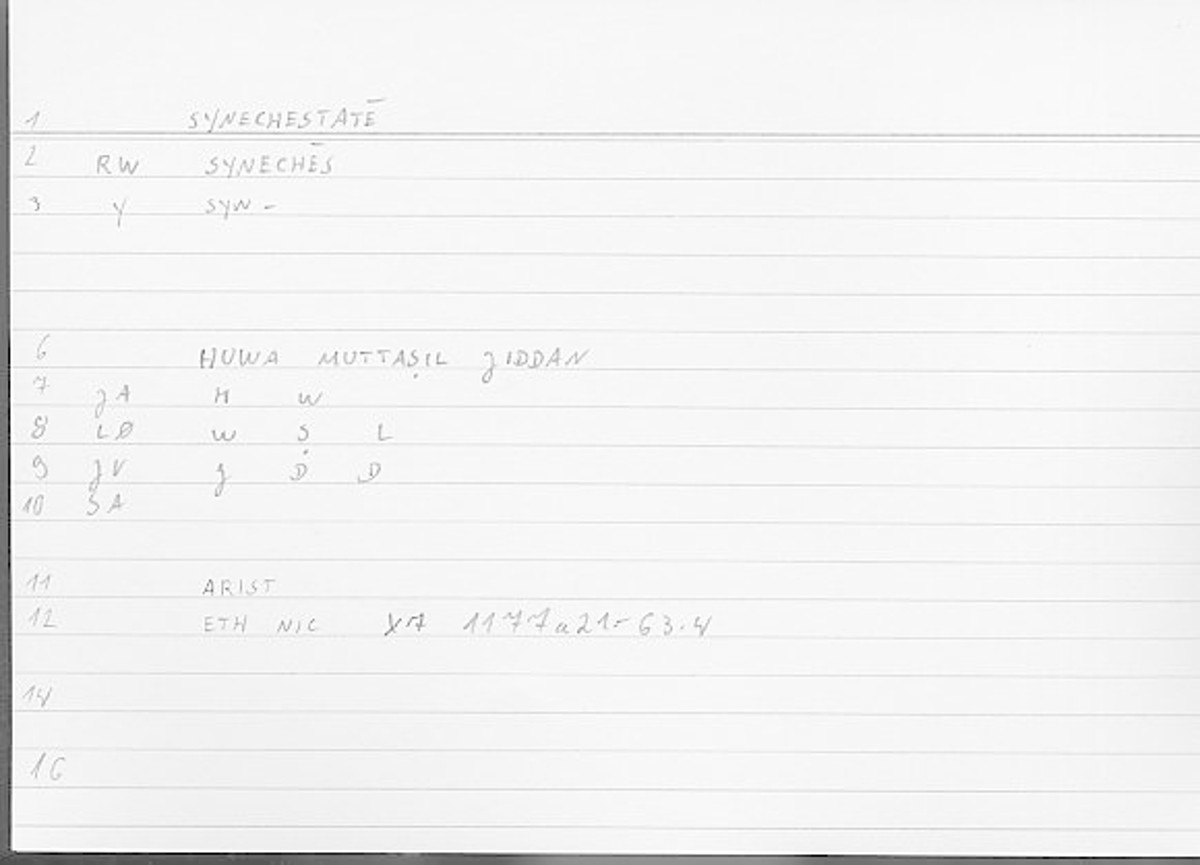 1 SYNECHESTATĒ
2 RW SYNECHĒS
3 Y SYN -
6 HUWA MUTTAṢIL JIDDAN
7 JA H W
8 LØ W Ṣ L
9 JV J D D
10 SA
11 ARIST
12 ETH NIC X7 1177a21-63.4
14
16